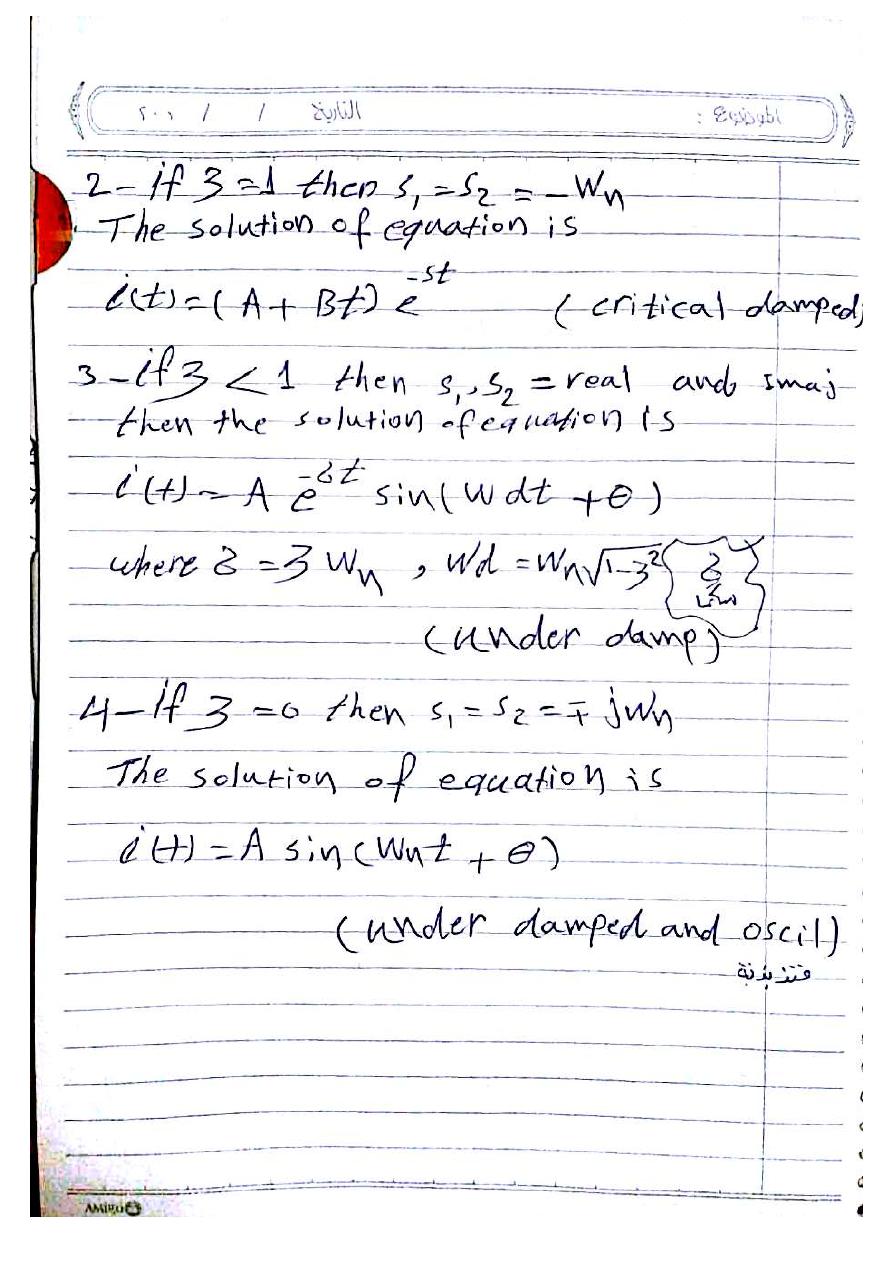 الموضوع : التاريخ / / ٢٠٠
2- if 3 =1 then s₁ = s₂ = -Wn
The solution of equation is
i(t) = (A + Bt) e^-st (critical damped)
3- if 3 < 1 then s₁, s₂ = real and Imaj
then the solution of equation is
i(t) = A e^-δt sin(Wdt + θ)
where δ = 3 Wn , Wd = Wn√1-3² { δ
(under damp)
4- if 3 = 0 then s₁ = s₂ = ∓ jWn
The solution of equation is
i(t) = A sin(Wnt + θ)
(under damped and oscil)
متذبذبة
AMIGO